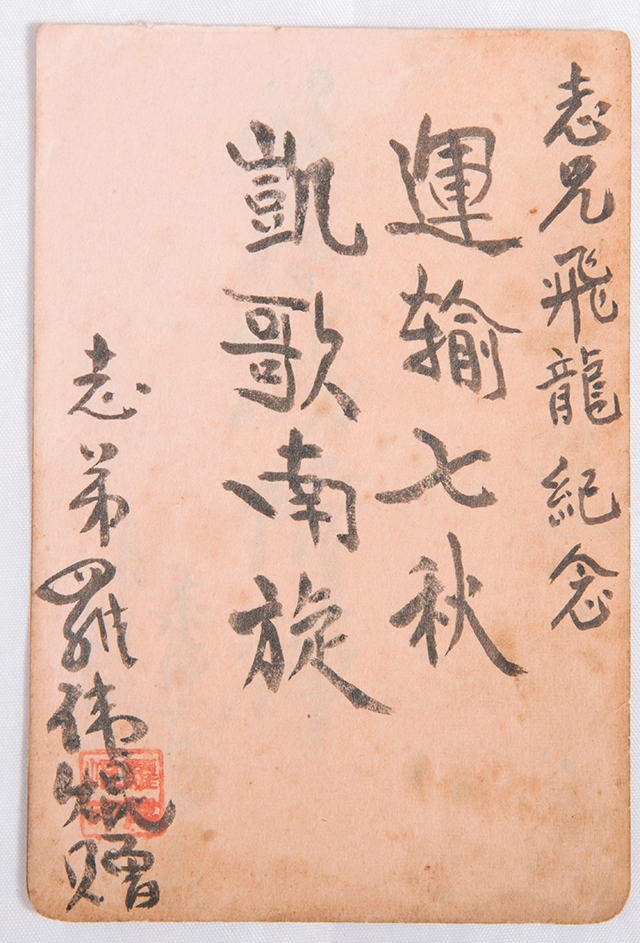 志兄飛龍紀念
運输七秋
凱歌南旋
志弟羅偉焜贈